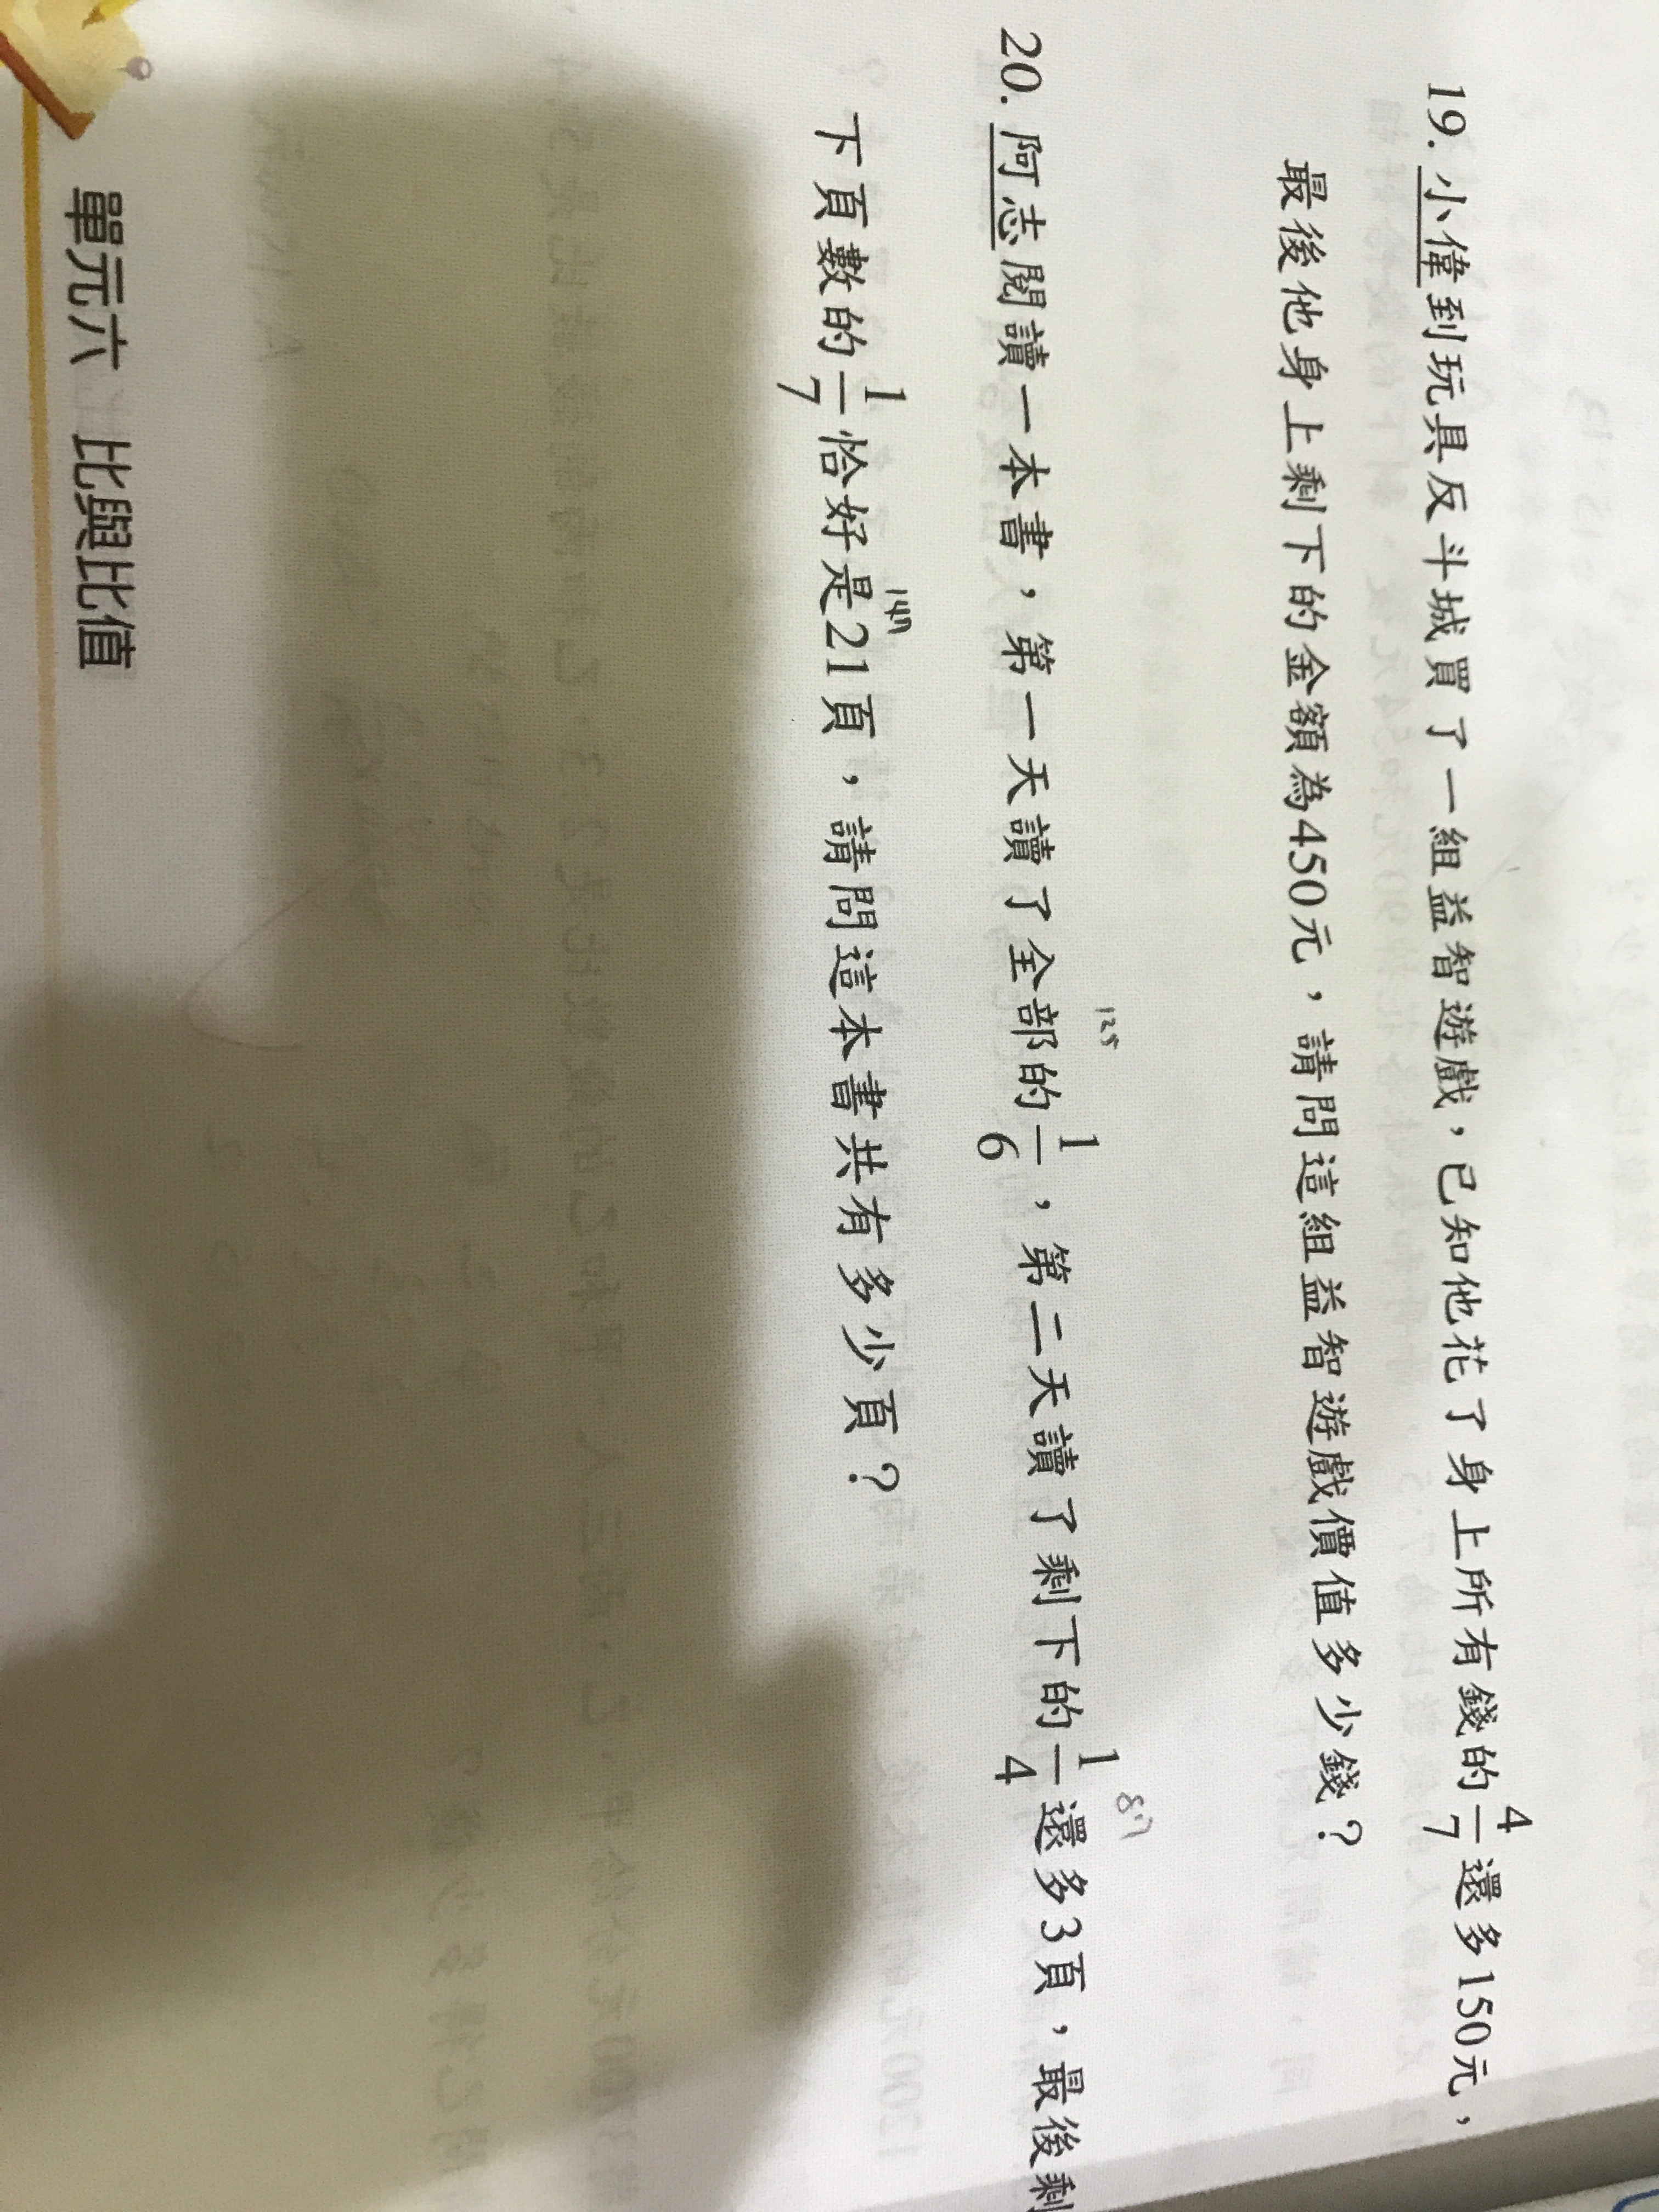 19. 小偉到玩具反斗城買了一組益智遊戲，已知他花了身上所有錢的4/7還多150元，
最後他身上剩下的金額為450元，請問這組益智遊戲價值多少錢？
20. 阿志閱讀一本書，第一天讀了全部的1/6，第二天讀了剩下的1/4還多3頁，最後剩
下頁數的1/7恰好是21頁，請問這本書共有多少頁？
147
單元六 比與比值